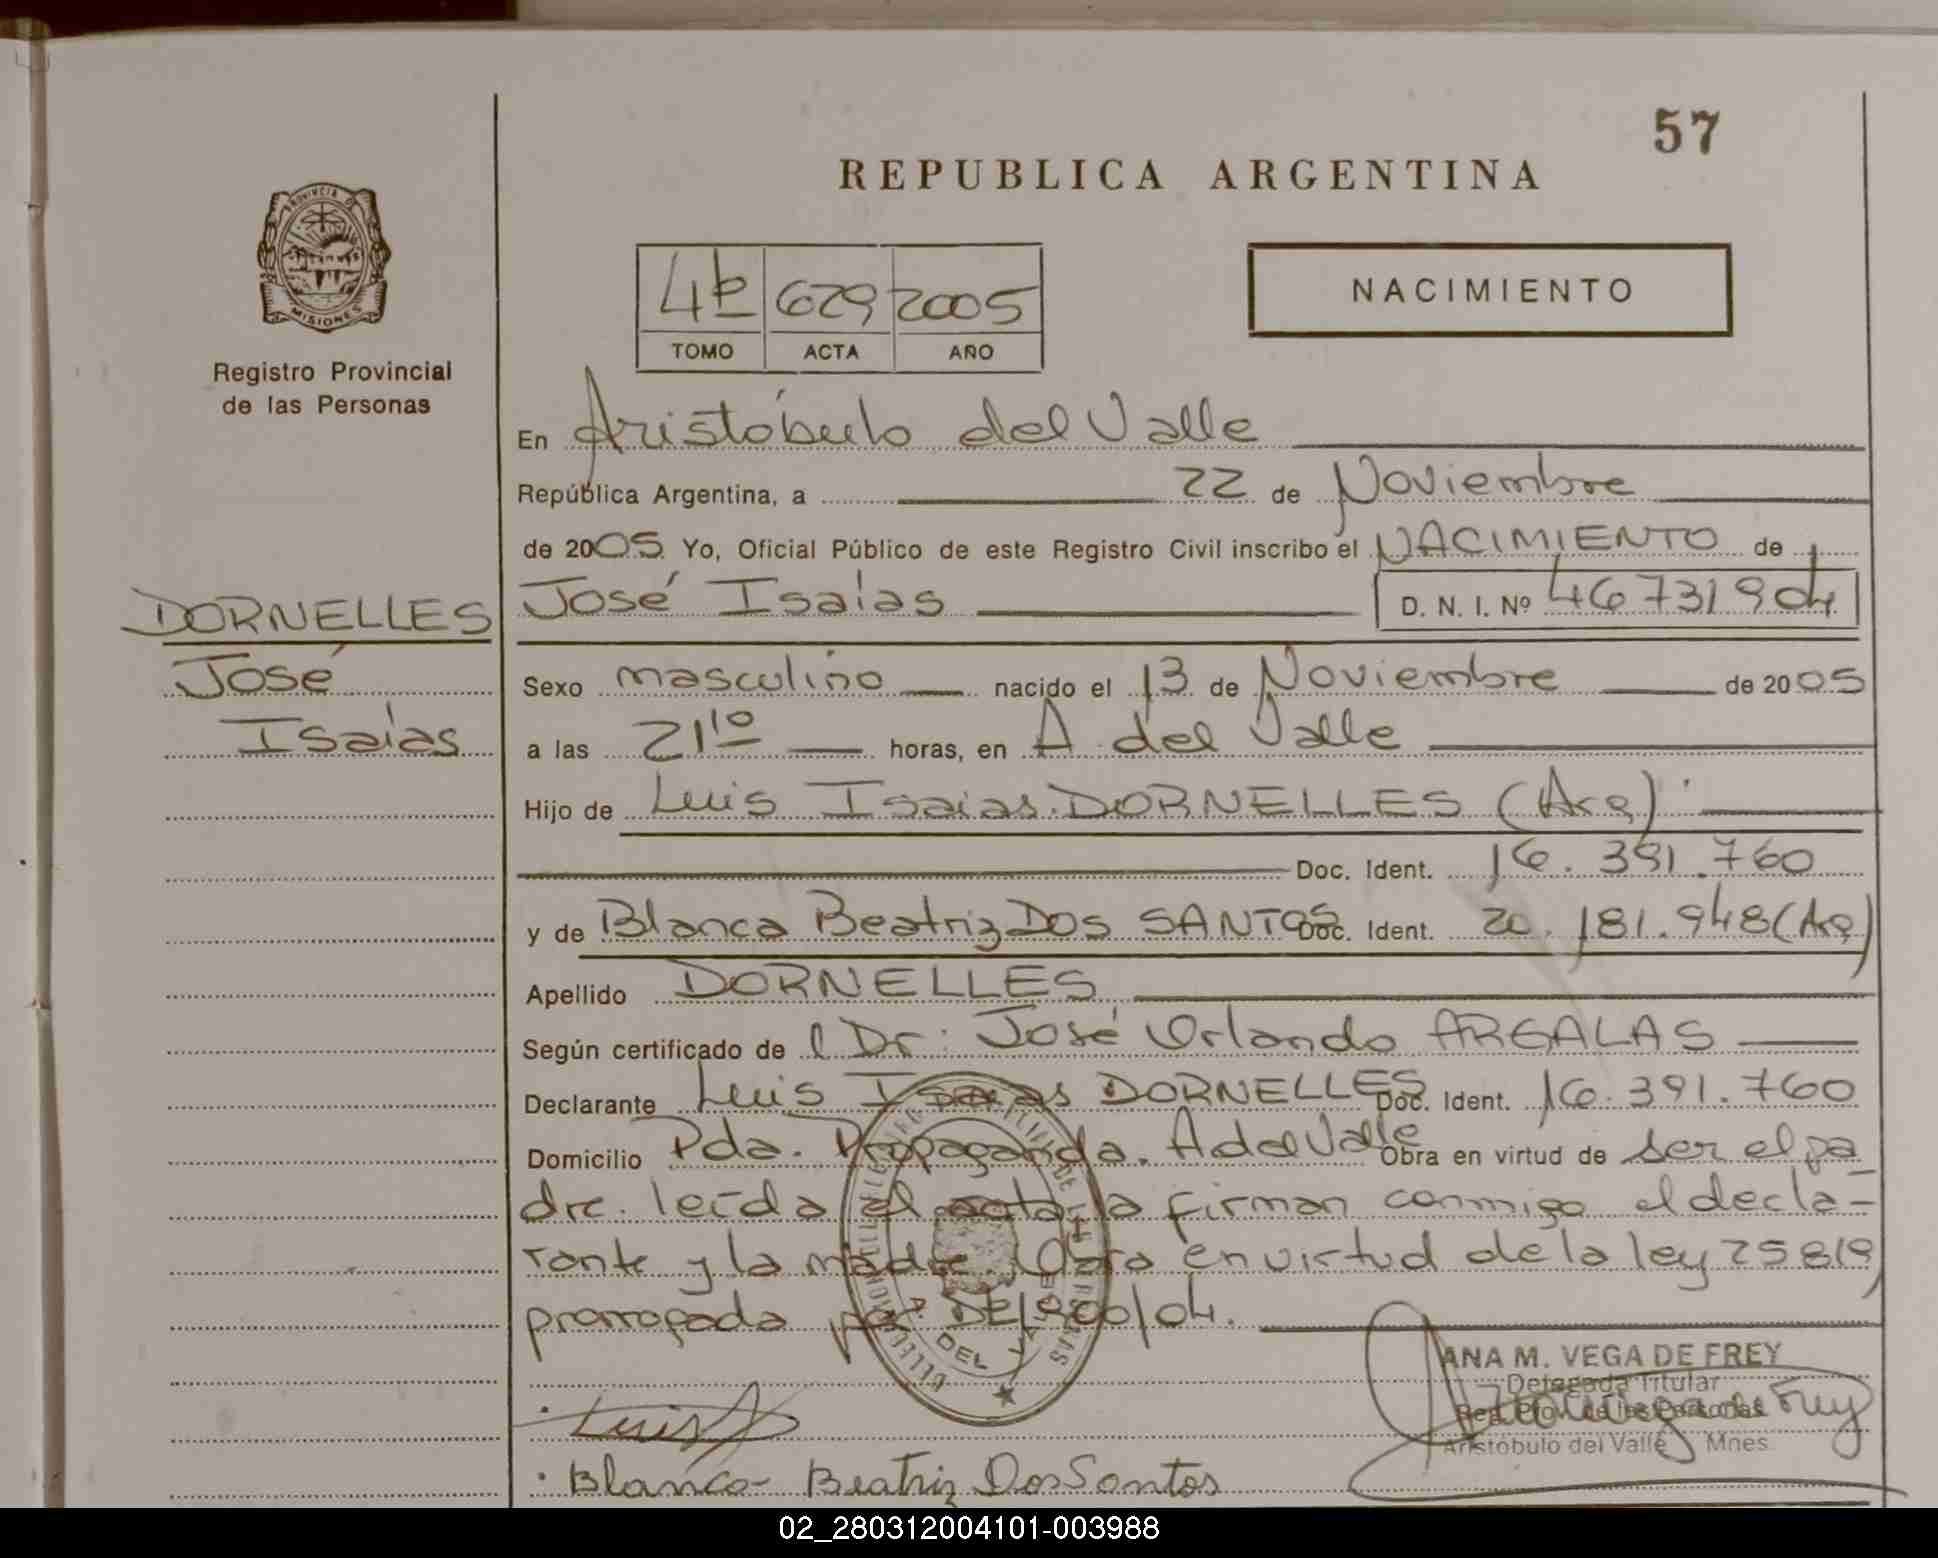 57
REPUBLICA ARGENTINA
PROVINCIA DE
MISIONES
Registro Provincial
de las Personas
4º 629 2005
TOMO ACTA AÑO
NACIMIENTO
En Aristóbulo del Valle
República Argentina, a 22 de Noviembre
de 2005 Yo, Oficial Público de este Registro Civil inscribo el NACIMIENTO de
DORNELLES
José
Isaías
José Isaías D. N. I. Nº 46731904
Sexo masculino nacido el 13 de Noviembre de 2005
a las 21¹⁰ horas, en A del Valle
Hijo de Luis Isaias DORNELLES (Arg)
Doc. Ident. 16.391.760
y de Blanca Beatriz DOS SANTOS Doc. Ident. 20.181.948 (Arg)
Apellido DORNELLES
Según certificado de l Dr. José Orlando ARGALAS
Declarante Luis Isaias DORNELLES Doc. Ident. 16.391.760
Domicilio Pda. Propaganda. A del Valle Obra en virtud de ser el pa
dre. leída el acta la firman conmigo el decla-
rante y la madre. Obra en virtud de la ley 25819
prorrogada por DEL
DEL VALLE
ANA M. VEGA DE FREY
Delegada Titular
Reg. Prov. de las Personas
Aristóbulo del Valle Mnes.
Luis
Blanca Beatriz Dos Santos
02_280312004101-003988